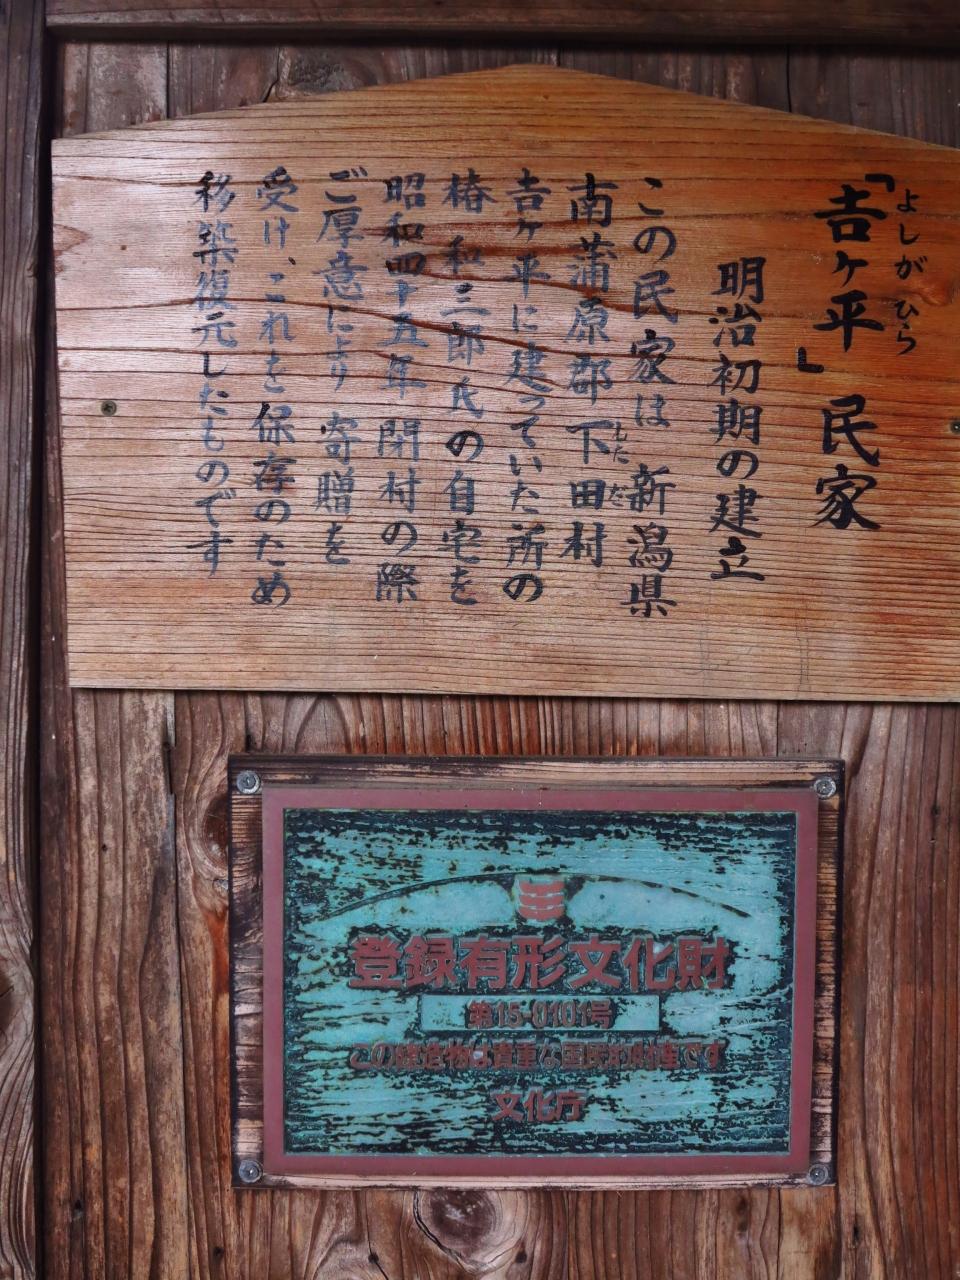 「吉ヶ平」民家
よしがひら
明治初期の建立
この民家は 新潟県
南蒲原郡 下田村
しただ
吉ヶ平に建っていた所の
椿 和三郎氏の自宅を
昭和四十五年 閉村の際
ご厚意により 寄贈を
受け、これを保存のため
移築復元したものです
登録有形文化財
第15-0101号
この建造物は貴重な国民的財産です
文化庁